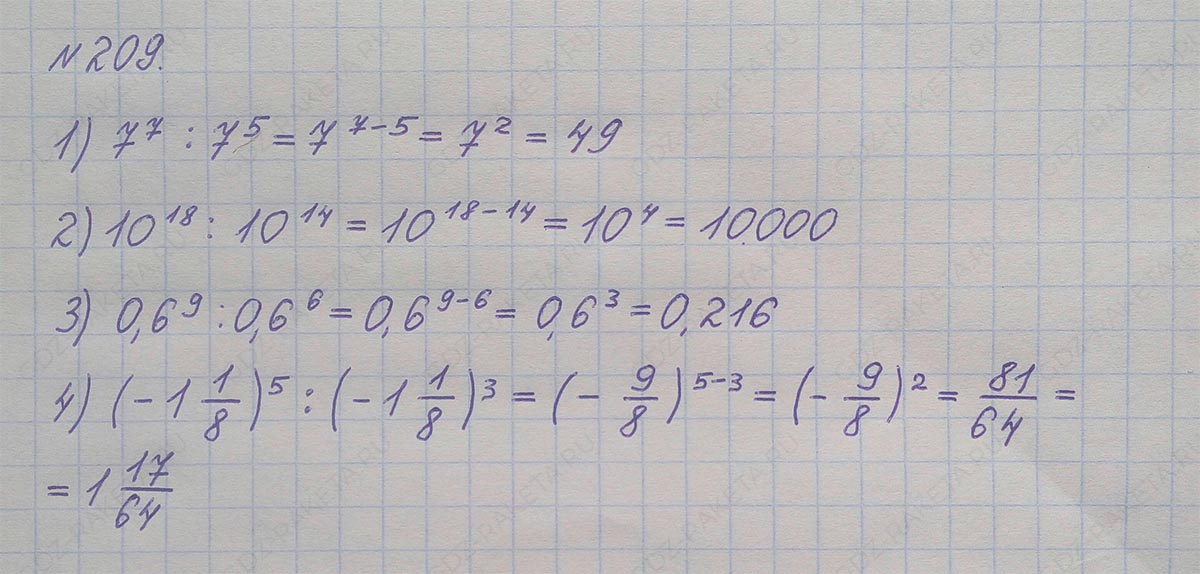 № 209.
1) 7⁷ : 7⁵ = 7⁷⁻⁵ = 7² = 49
2) 10¹⁸ : 10¹⁴ = 10¹⁸⁻¹⁴ = 10⁴ = 10000
3) 0,6⁹ : 0,6⁶ = 0,6⁹⁻⁶ = 0,6³ = 0,216
4) (-1 1/8)⁵ : (-1 1/8)³ = (- 9/8)⁵⁻³ = (- 9/8)² = 81/64 =
= 1 17/64